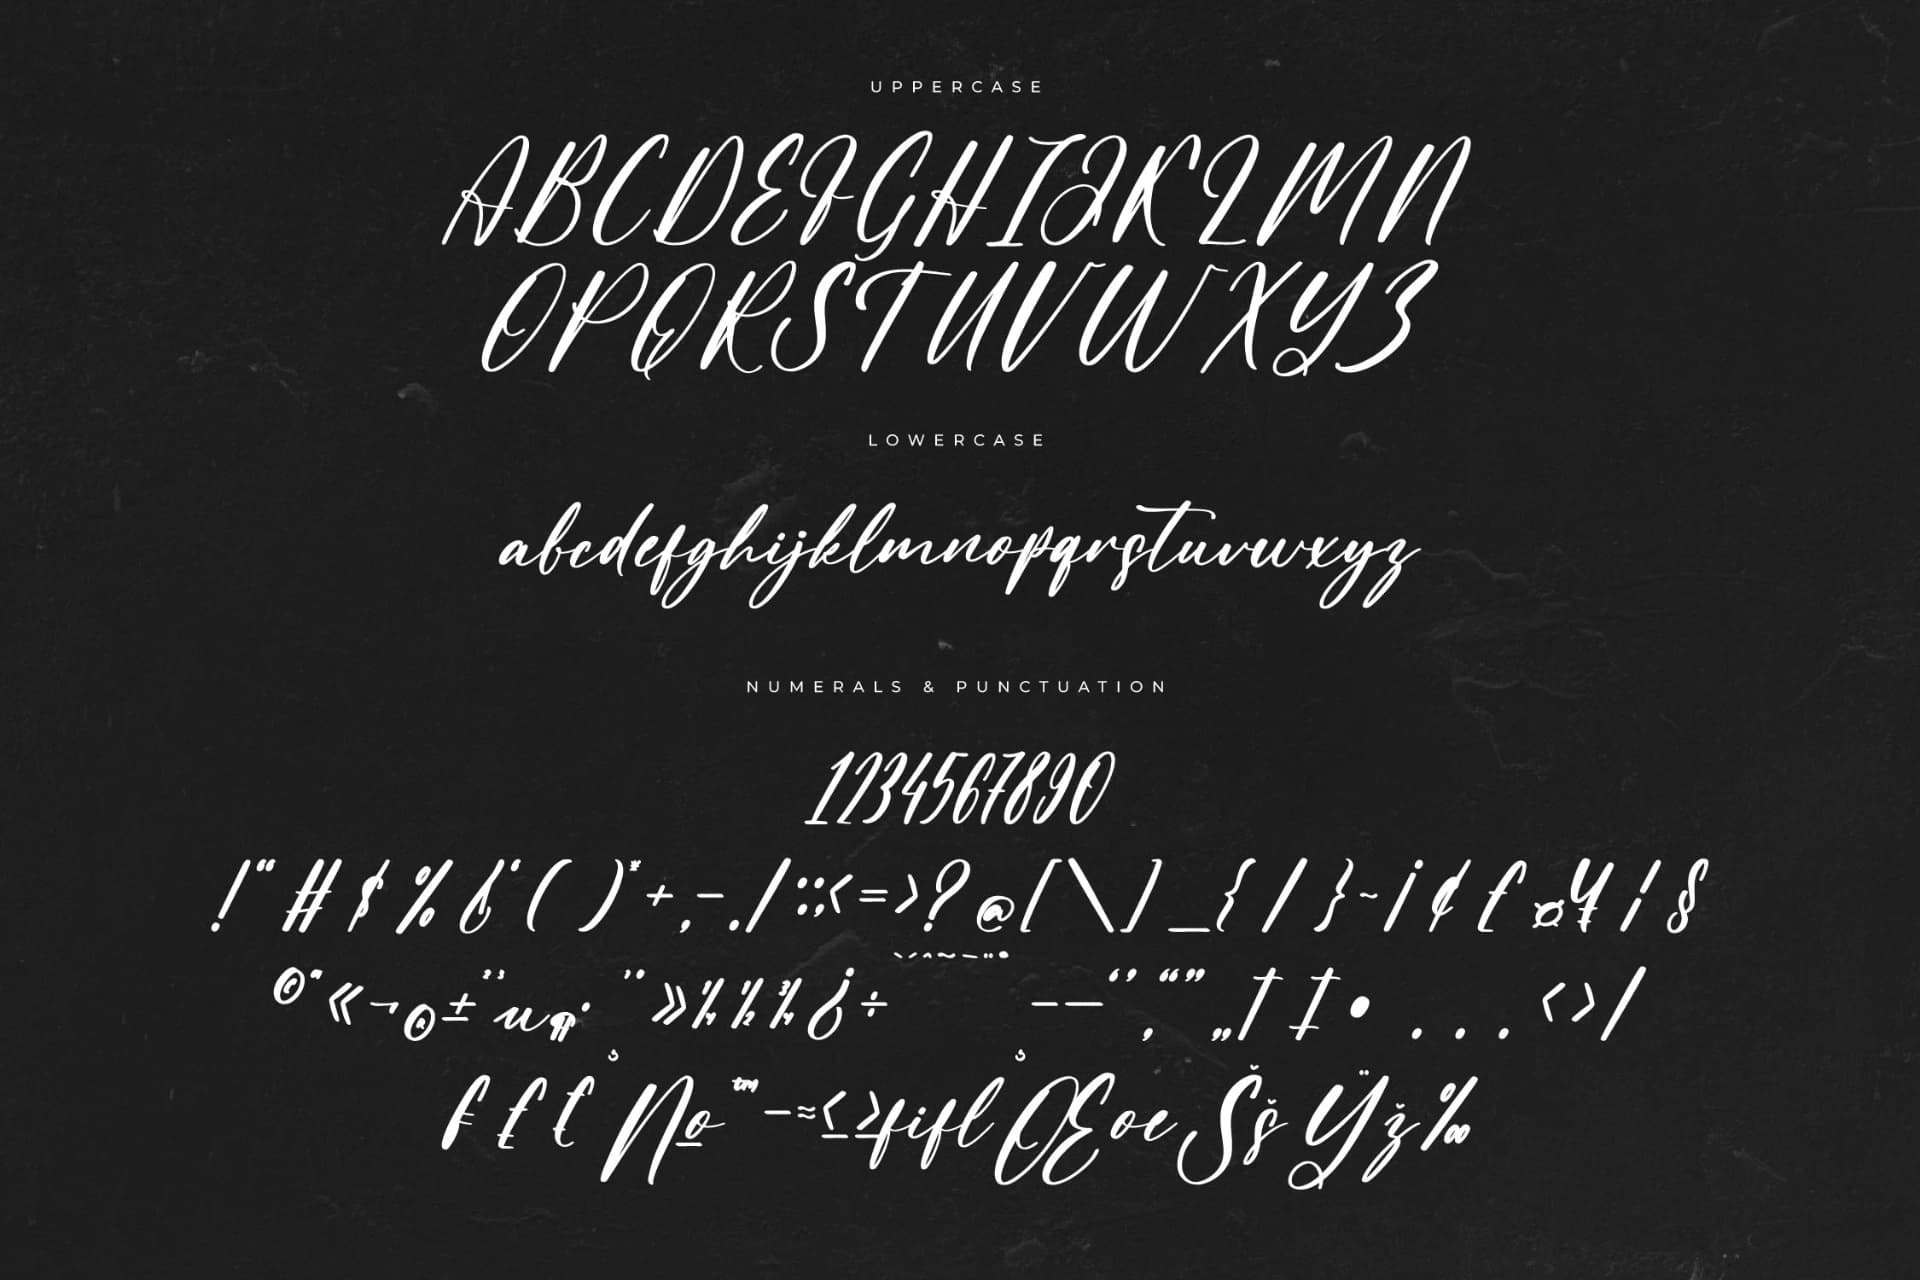 UPPERCASE
ABCDEFGHIJKLMN
OPQRSTUVWXYZ
LOWERCASE
abcdefghijklmnopqrstuvwxyz
NUMERALS & PUNCTUATION
1234567890
!"#$%&'()*+,-./:;<=>?@[\]_{|}~¡¢£¤¥¦§
©ª«¬®±²³µ¶·¸¹º»¼½¾¿÷–—‘’‚“”„†‡•...‹›⁄
₣₤₺№™−≈≤≥fiflŒœŠšŸž‰